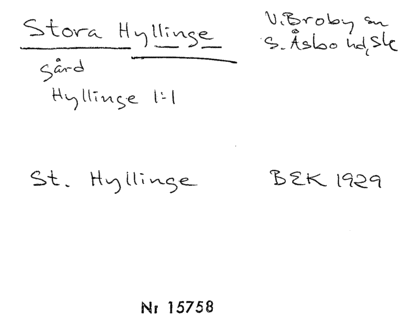 Stora Hyllinge
V. Broby sn
S. Åsbo hd, Sk
gård
Hyllinge 1:1
St. Hyllinge
BEK 1929
Nr 15758